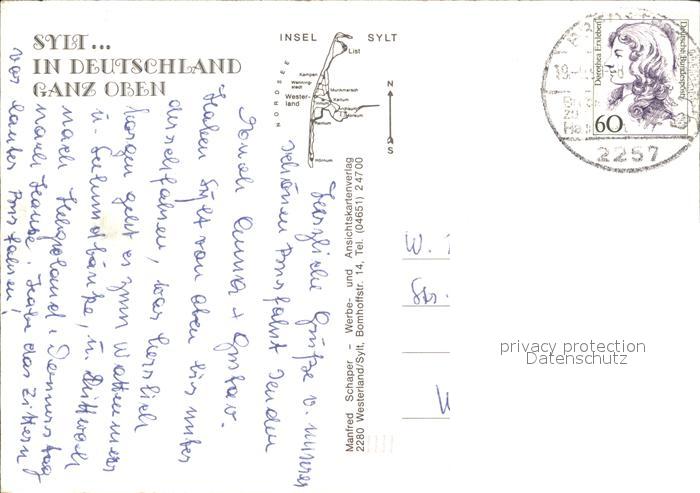 SYLT...
IN DEUTSCHLAND
GANZ OBEN
INSEL SYLT
List
Kampen
Wenning-
stedt
Munkmarsch
Wester-
land
Keitum
Morsum
Hörnum
NORDSEE
N
S
Herzliche Grüße v. unserer
schönen Busfahrt senden
Euch Anna + Gustav.
Haben Sylt von oben bis unten
durchfahren, war herrlich
Morgen geht es zum Wattenmeer
u. Seehundbänke, u. Mittwoch
nach Helgoland. Donnerstag
nach Hause. Habe das Zittern
vor lauter Bus fahren!
Manfred Schaper – Werbe- und Ansichtskartenverlag
2280 Westerland/Sylt, Bomhoffstr. 14, Tel. (04651) 24700
Dorothea Erxleben
Deutsche Bundespost
60
2257
W.
Str.
W
privacy protection
Datenschutz